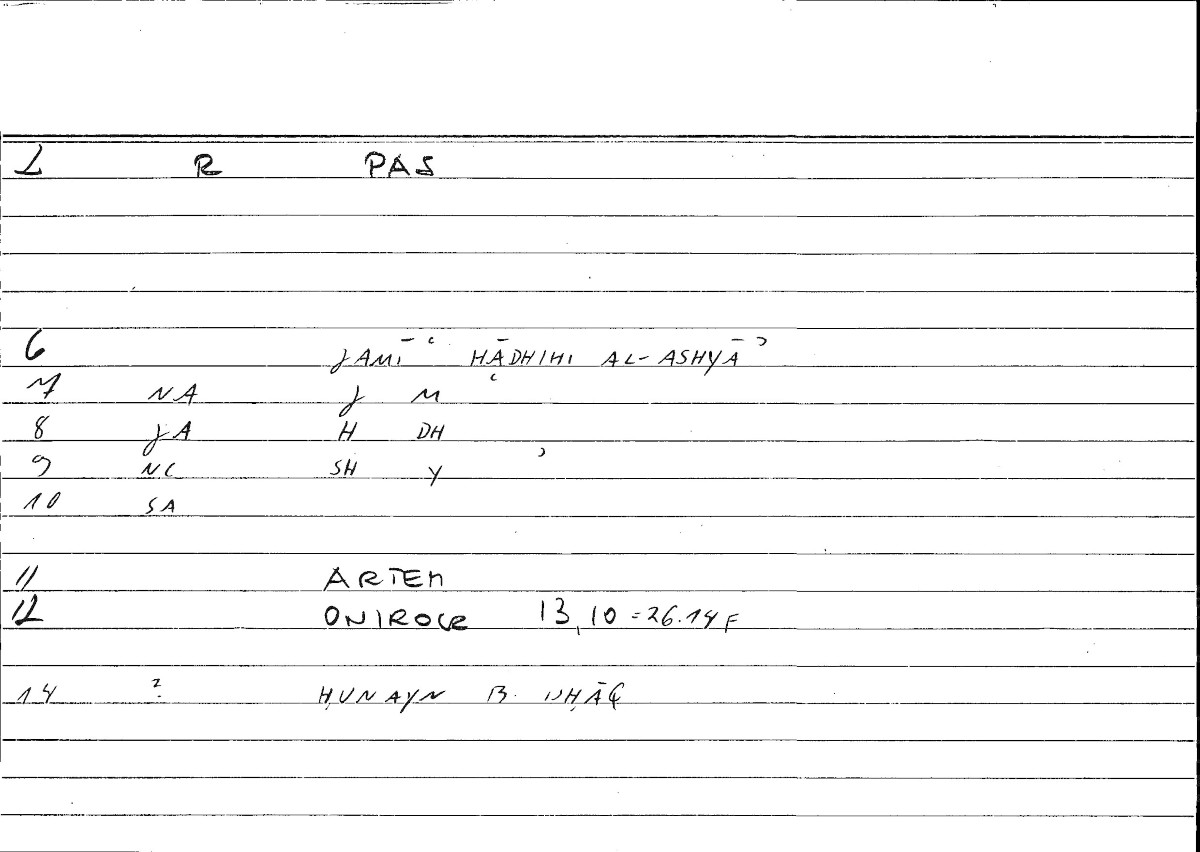 L R PAS
6 JAMĪʿ HĀDHIHI AL-ASHYĀʾ
7 NA J M ʿ
8 JA H DH
9 NC SH Y ʾ
10 SA
11 ARTEM
12 ONIROCR 13,10 = 26.14 F
14 ? ḤUNAYN B. ISḤĀQ